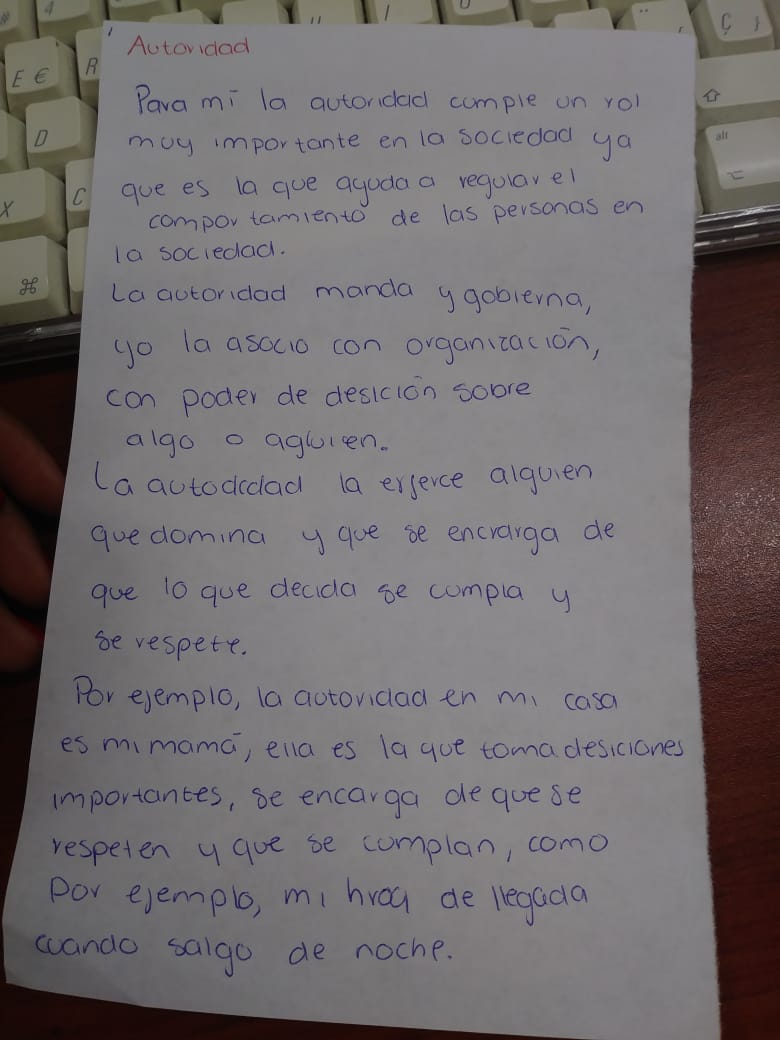 Autoridad
Para mí la autoridad cumple un rol
muy importante en la sociedad ya
que es la que ayuda a regular el
comportamiento de las personas en
la sociedad.
La autoridad manda y gobierna,
yo la asocio con organización,
con poder de desición sobre
algo o aguien.
La autodidad la erjerce alguien
que domina y que se encrarga de
que lo que decida se cumpla y
se respete.
Por ejemplo, la autoridad en mi casa
es mi mamá, ella es la que toma desiciones
importantes, se encarga de que se
respeten y que se cumplan, como
por ejemplo, mi hroa de llegada
cuando salgo de noche.